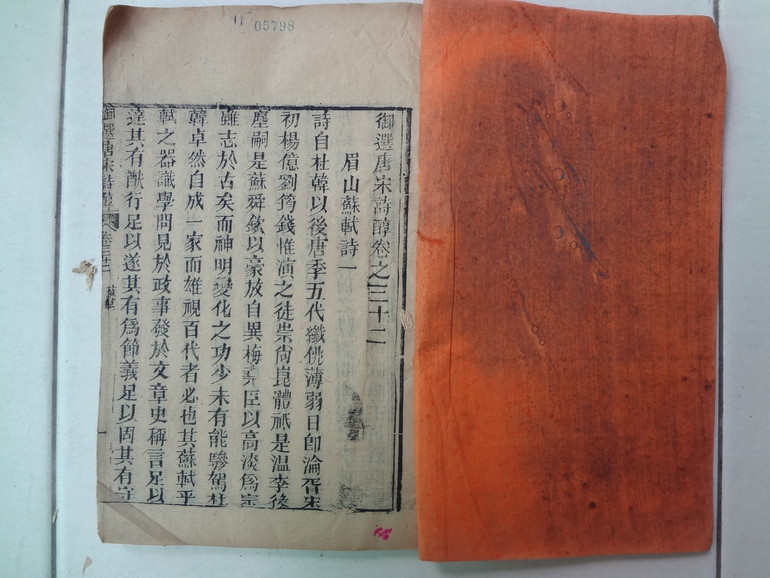 05798
御選唐宋詩醇卷之三十二
眉山蘇軾詩一
詩自杜韓以後唐季五代纖佻薄弱日卽淪胥宋
初楊億劉筠錢惟演之徒崇尙崑體祇是溫李後
塵嗣是蘇舜欽以豪放自異梅堯臣以高淡爲宗
雖志於古矣而神明變化之功少未有能驂駕杜
韓卓然自成一家而雄視百代者必也其蘇軾乎
軾之器識學問見於政事發於文章史稱言足以
達其有猷行足以遂其有爲節義足以固其有守
御選唐宋詩醇 卷三十二